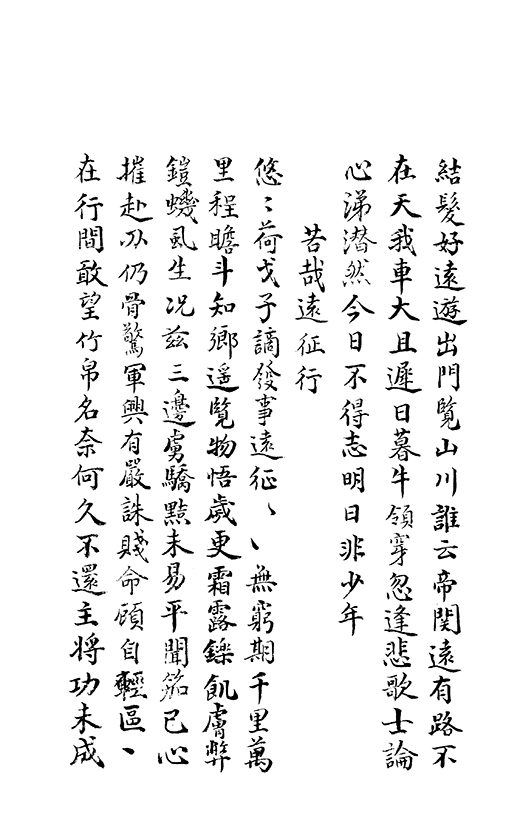 結髮好遠遊出門覽山川誰云帝関遠有路不
在天我車大且遲日暮牛領穿忽逢悲歌士論
心涕潸然今日不得志明日非少年
苦哉遠征行
悠〻荷戈子謫發事遠征、、無窮期千里萬
里程瞻斗知鄉遥覽物悟歲更霜露鑠飢膚弊
鎧蟣虱生况兹三邊虜驕黠未易平聞笳已心
摧赴刄仍骨驚軍興有嚴誅賤命顧自輕區、
在行間敢望竹帛名奈何久不還主將功未成